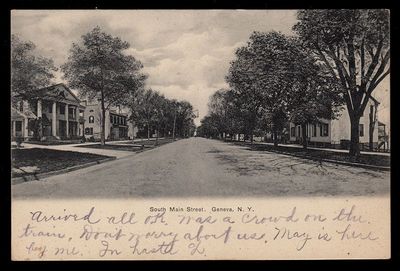 South Main Street. Geneva, N. Y.
Arrived all ok. was a crowd on the
train. Don't worry about us. May is here
me. In haste L.